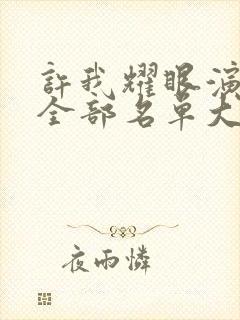 許我耀眼演
全部名單大
夜雨憐